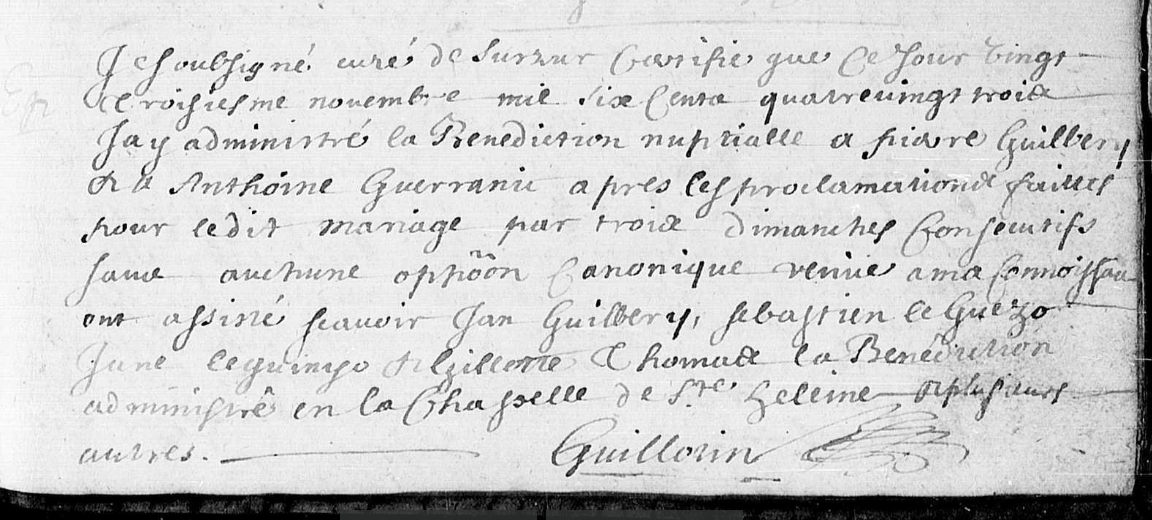 Je soubsigné curé de Surzur Certifie que Ce Jour vingt
troisiesme novembre mil six Cents quatrevingt trois
Jay administré la Benediction nuptialle a pierre Guillery
& a Anthoine Guerranic apres les proclamations faittes
pour ledit mariage par trois dimanches Consecutifs
sans auchune oppõõn Canonique venue a ma Connoissan
ont assiné scavoir Jan Guillery, sebastien le Guezo
Jane leguinyo & Gillette Thomas la Benediction
administré en la Chapelle de Ste heleine & plusieurs
autres.
Guillorin